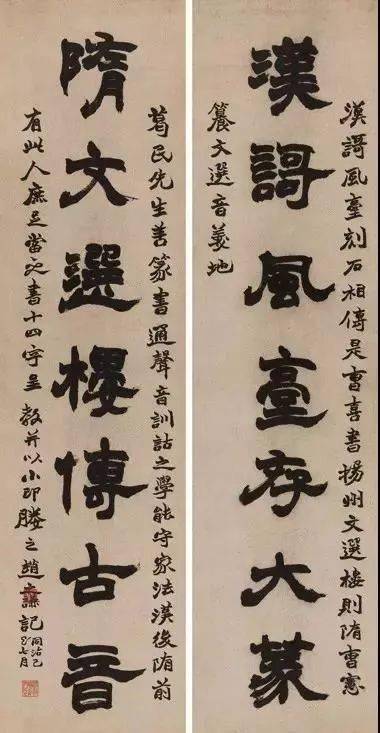 漢謌風臺存大篆
漢謌風臺刻石相傳是曹喜書楊州文選樓則隋曹憲
籑文選音義地
隋文選樓傳古音
葛民先生善篆書通聲音訓詁之學能守家法漢後隋前
有此人庶足當之書十四字呈 教并以小印媵之趙之謙記
同治己
巳七月